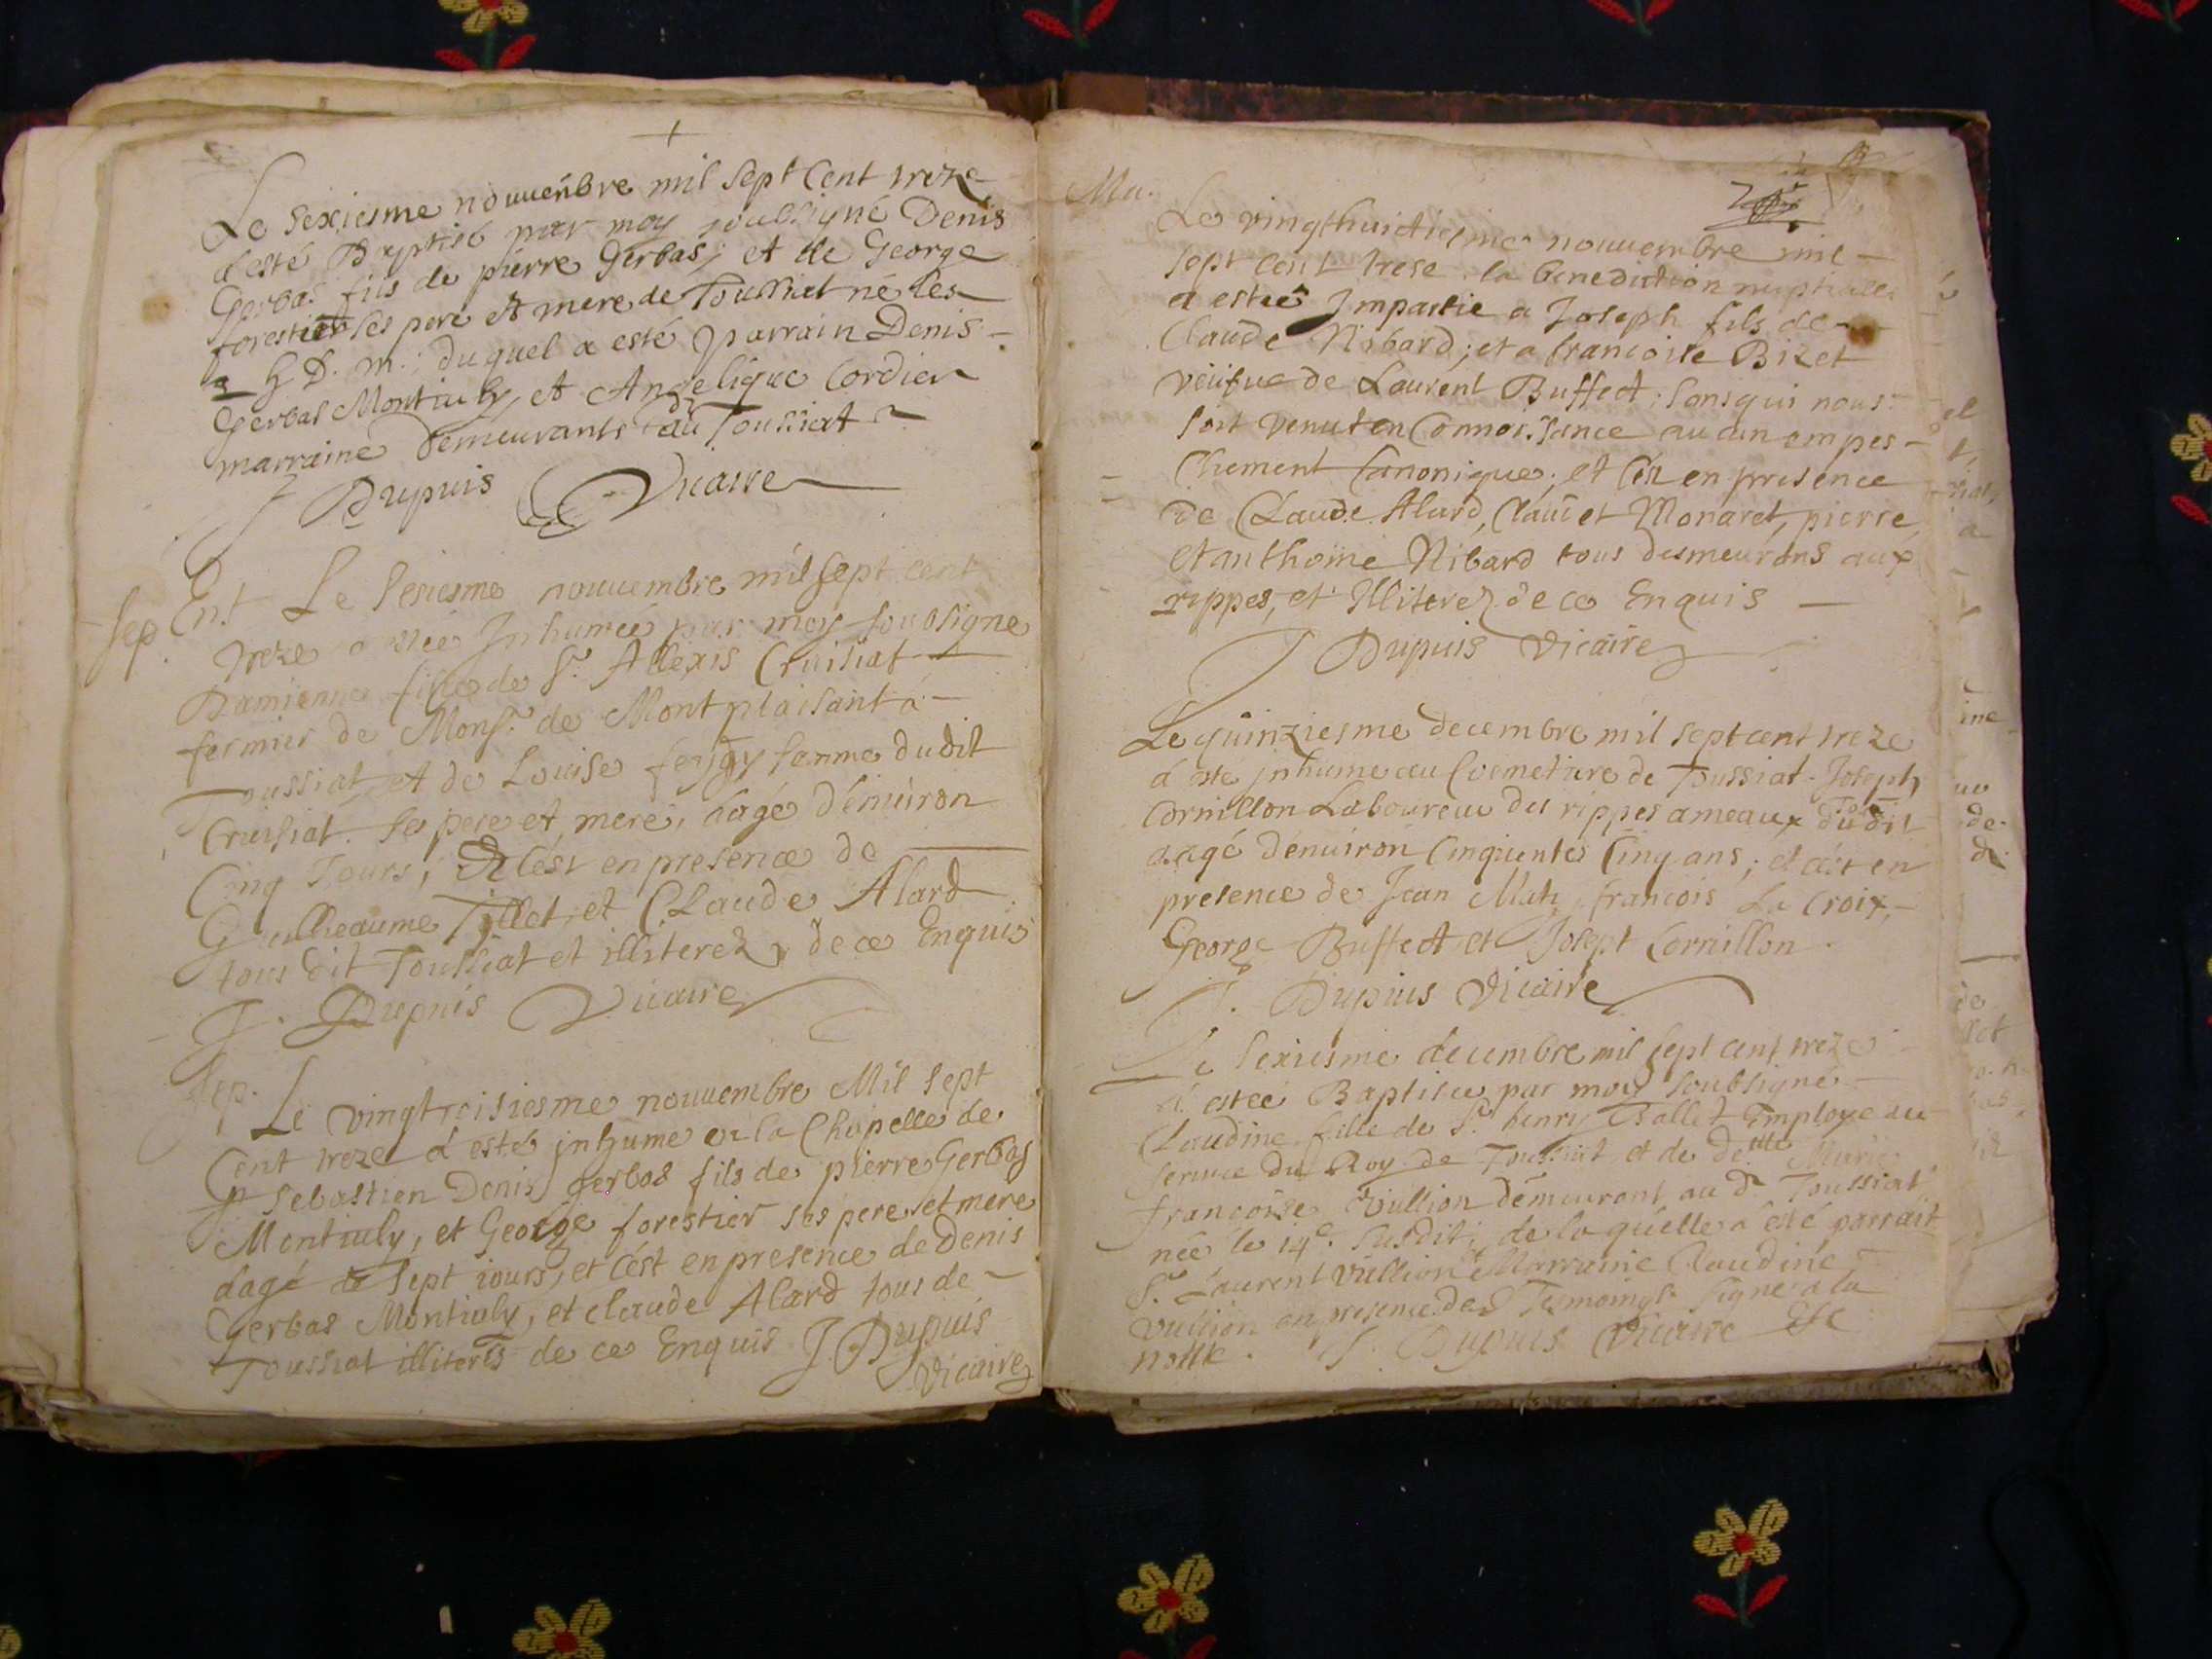 Le sexiesme nouuembre mil sept Cent treze
a esté Baptisé par moy soubsigné Denis
Gerbas fils de pierre Gerbas; et de George
forestier ses pere et mere de Toussiat né les
D. m.; duquel a esté parrain Denis
Gerbas Montiuly et Angelique Cordier
marraine demeurants au Toussiat
J Dupuis Vicaire
Ent Le sesiesme nouuembre mil sept cent
Sep. treze a estée Inhumée par moy soubsigne
Damienne fille de Sr. Allexis Cruisiat
fermier de Monsr. de Montplaisant a
Toussiat et de Louise femme dudit
Cruisiat ses pere et mere, aagé d'enuiron
Cinq Jours; et c'est en presence de
Guilheaume Tillet, et Claude Alard
tous dit Toussiat et illiterez de ce Enquis
J. Dupuis Vicaire
Sep. Le vingtroisiesme nouuembre Mil sept
Cent treze a esté inhume en la Chapelle de
St Sebastien Denis Gerbas fils de pierre Gerbas
Montiuly, et George forestier ses pere et mere
aagé de sept iours, et c'est en presence de Denis
Gerbas Montiuly, et claude Alard tous de
Toussiat illiterés de ce Enquis J. Dupuis
Vicaire
Ma.
Le vingthuictiesme nouuembre mil
sept cent trese la benediction nuptialle
a estée Impartie a Joseph fils de
Claude Nibard; et a francoise Bizet
veufue de Laurent Buffect; sans qui nous
soit venut en Connoissance aucun empes
chement Canonique; et c'est en presence
de Claude Alard, Claude et Monaret, pierre,
et anthoine Nibard tous desmeurans aux
rippes, et Illiterez de ce Enquis
J Dupuis Vicaire
Le quinziesme decembre mil sept cent treze
a esté inhume au Coemetiere de Toussiat Joseph
Cornillon Laboureur des rippes ameaux dudit Tous.
aagé denuiron Cinquente Cinq ans; et c'est en
presence de Jean Mati, francois La Croix,
George Buffect et Josept Cornillon
J. Dupuis Vicaire
Le sexiesme decembre mil sept cent treze
a estée Baptisée par moy soubsigné
Claudine fille de Sr. henry Ballet Employé au
seruice du Roy de Toussiat et de delle Marie
francoise Vullion demeurant au dt Toussiat
née le 14e. susdit; de laquelle a esté parrain
Sr. Laurent Vullion et Marraine Claudine
Vullion en presence des Tesmoings signe a la
notte. J. Dupuis Vicaire